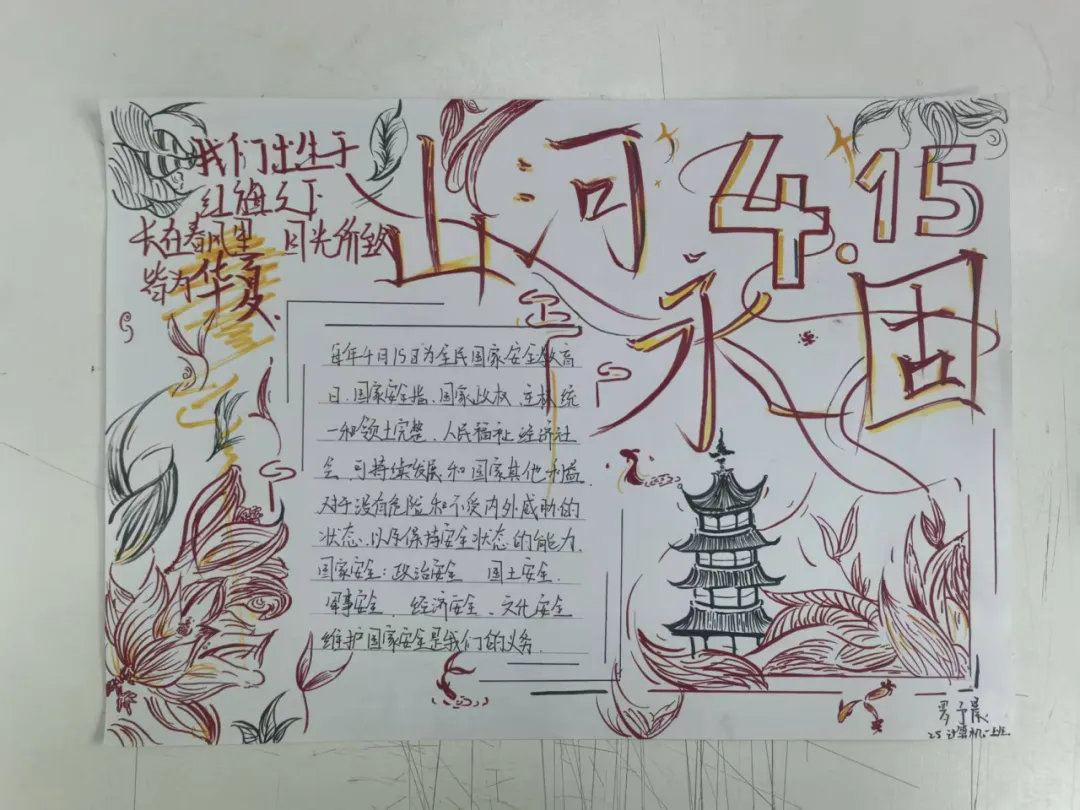 我们出生于
红旗下
长在春风里 目光所致
皆为华夏.
山河
4.15
永固
每年4月15日为全民国家安全教育
日.国家安全指.国家政权.主权统
一和领土完整.人民福祉.经济社
会.可持续发展和国家其他利益.
对于没有危险和不受内外威胁的
状态.以及保持安全状态的能力.
国家安全:政治安全 国土安全.
军事安全.经济安全、文化安全
维护国家安全是我们的义务.
罗予晨
25计算机一班